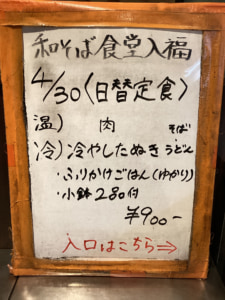 和そば食堂入福
4/30〈日替定食〉
温) 肉
そば
冷) 冷やしたぬきうどん
・ふりかけごはん(ゆかり)
・小鉢2品付
¥900-
入口はこちら⇒